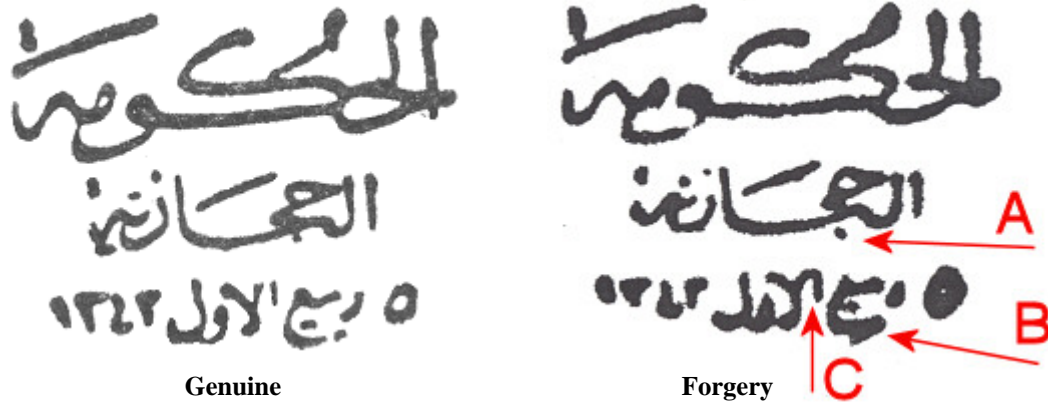 الحكومة
الحجازية
٥ ربيع الاول ١٣٤٣
Genuine
الحكومة
الحجازية
٥ ربيع الاول ١٣٤٣
A
B
C
Forgery